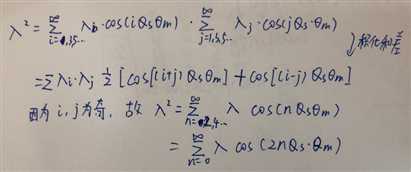 λ² = ∞∑i=1,3,5... λi·cos(iQsθm) · ∞∑j=1,3,5... λj·cos(jQs·θm)
积化和差
=∑λi·λj 1/2 [cos[(i+j)Qsθm] + cos[(i-j)Qsθm]
因为 i, j为奇, 故 λ² = ∞∑n=0,2,4... λ cos(nQsθm)
= ∞∑n=0 λ cos(2nQs·θm)